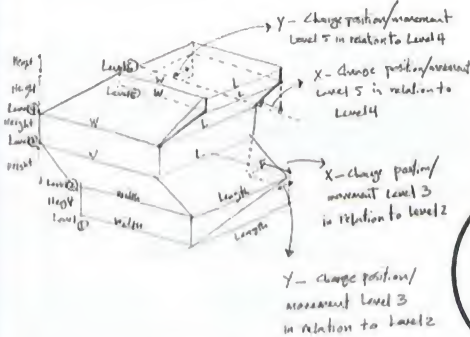 Y - Change position/movement
Level 5 in relation to Level 4
X - Change position/movement
Level 5 in relation to
Level 4
X - Change position/
movement Level 3
in relation to Level 2
Y - Change position/
movement Level 3
in relation to Level 2
Height
Height
Height
Height
Height
Level
Level
Level
Level ①
Length
Level
W
W
W
V
L
L
L
L
Width
Width
Length
Length